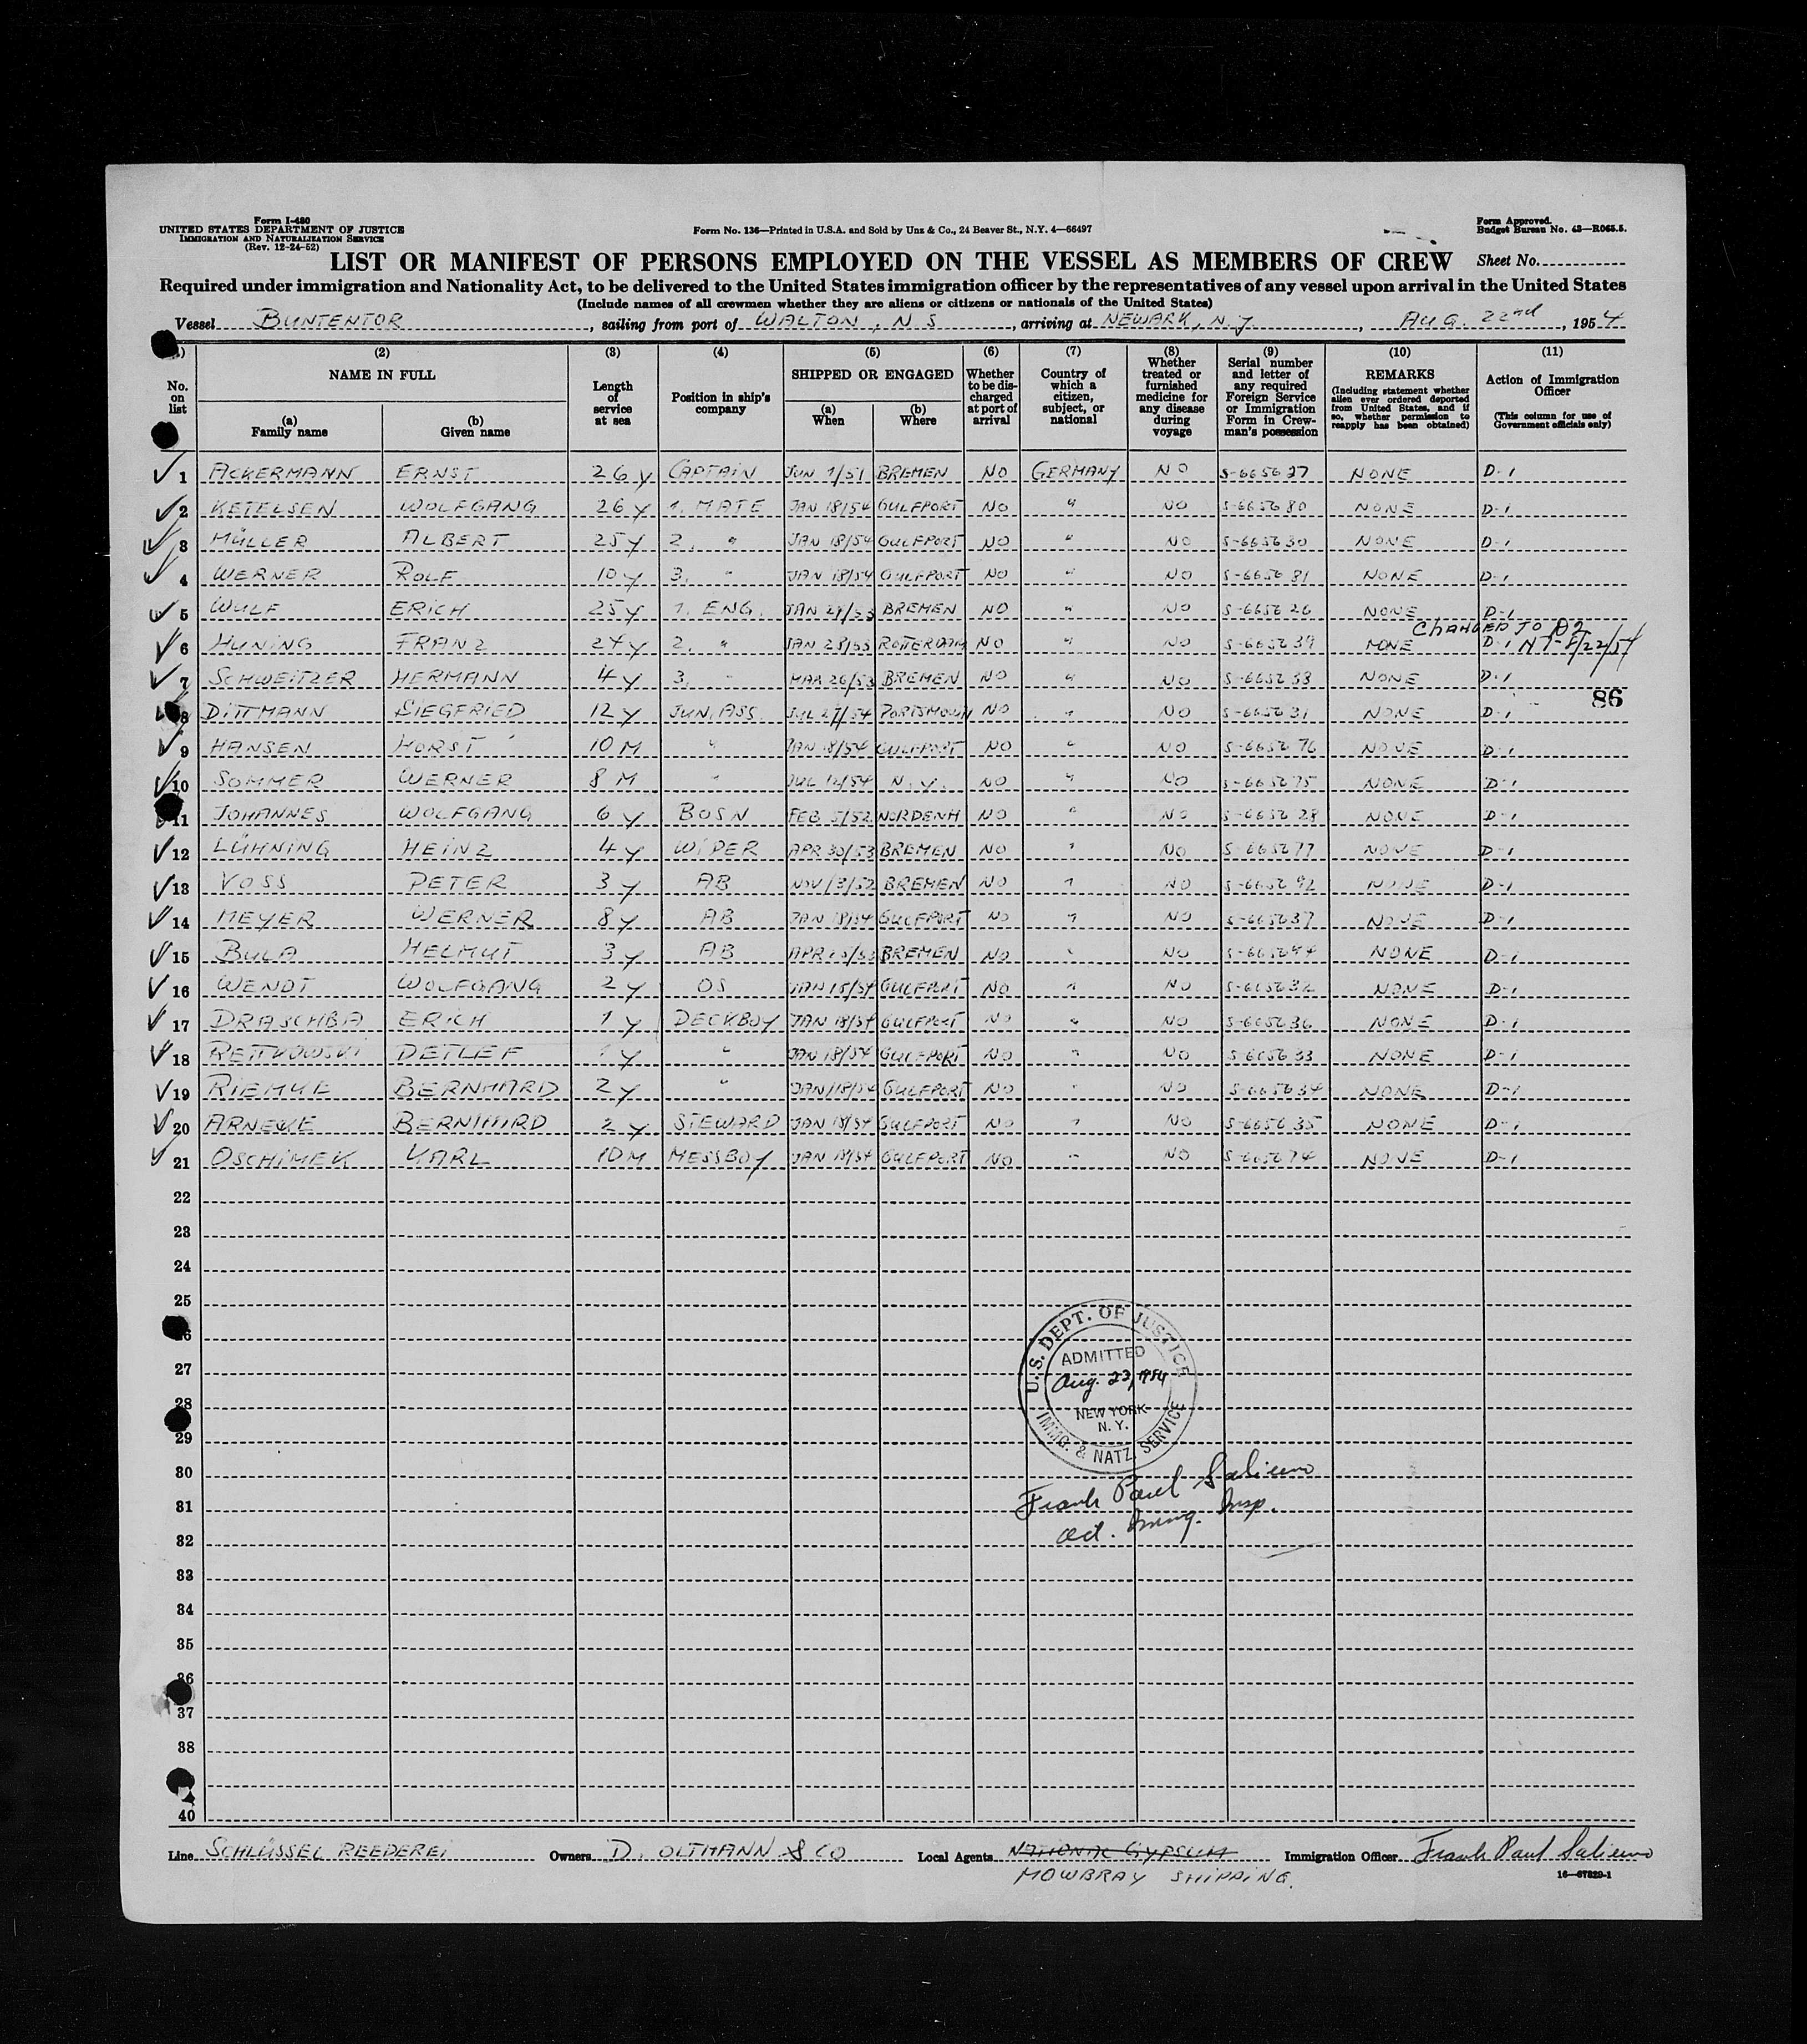 Form I-480
UNITED STATES DEPARTMENT OF JUSTICE
IMMIGRATION AND NATURALIZATION SERVICE
(Rev. 12-24-52)
Form No. 136—Printed in U.S.A. and Sold by Unz & Co., 24 Beaver St., N.Y. 4—66497
Form Approved.
Budget Bureau No. 43—R065.5.
LIST OR MANIFEST OF PERSONS EMPLOYED ON THE VESSEL AS MEMBERS OF CREW
Sheet No.
Required under immigration and Nationality Act, to be delivered to the United States immigration officer by the representatives of any vessel upon arrival in the United States
(Include names of all crewmen whether they are aliens or citizens or nationals of the United States)
Vessel BUNTENTOR, sailing from port of WALTON, N.S, arriving at NEWARK, N.J., AUG. 22nd, 1954
(2) (3) (4) (5) (6) (7) (8) (9) (10) (11)
No. on list
NAME IN FULL
(a) Family name
(b) Given name
Length of service at sea
Position in ship's company
SHIPPED OR ENGAGED
(a) When
(b) Where
Whether to be discharged at port of arrival
Country of which a citizen, subject, or national
Whether treated or furnished medicine for any disease during voyage
Serial number and letter of any required Foreign Service or Immigration Form in Crewman's possession
REMARKS
(Including statement whether alien ever ordered deported from United States, and if so, whether permission to reapply has been obtained)
Action of Immigration Officer
(This column for use of Government officials only)
1 ACKERMANN ERNST 26 y CAPTAIN JUN 1/51 BREMEN NO GERMANY NO S-665627 NONE D-1
2 KETELSEN WOLFGANG 26 y 1. MATE JAN 18/54 GULFPORT NO " NO S-665680 NONE D-1
3 MÜLLER ALBERT 25 y 2. " JAN 18/54 GULFPORT NO " NO S-665630 NONE D-1
4 WERNER ROLF 10 y 3. " JAN 18/54 GULFPORT NO " NO S-665681 NONE D-1
5 WULF ERICH 25 y 1. ENG. JAN 29/53 BREMEN NO " NO S-665626 NONE D-1
CHANGED TO D2
6 HUNING FRANZ 24 y 2. " JAN 28/53 ROTTERDAM NO " NO S-665639 NONE D-1 NT-8/22/54
7 SCHWEITZER HERMANN 4 y 3. " MAR 26/53 BREMEN NO " NO S-665638 NONE D-1
86
8 DITTMANN SIEGFRIED 12 y JUN. ASS. JUL 27/54 PORTSMOUTH NO " NO S-665631 NONE D-1
9 HANSEN HORST 10 M " JAN 18/54 GULFPORT NO " NO S-665676 NONE D-1
10 SOMMER WERNER 8 M " JUL 12/54 N.Y. NO " NO S-665675 NONE D-1
11 JOHANNES WOLFGANG 6 y BOSN FEB 5/52 NORDENH NO " NO S-665628 NONE D-1
12 LÜHNING HEINZ 4 y WIPER APR 30/53 BREMEN NO " NO S-665677 NONE D-1
13 VOSS PETER 3 y AB NOV 13/52 BREMEN NO " NO S-665692 NONE D-1
14 MEYER WERNER 8 y AB JAN 18/54 GULFPORT NO " NO S-665637 NONE D-1
15 BULA HELMUT 3 y AB BREMEN NO " NO NONE D-1
16 WENDT WOLFGANG 2 y OS JAN 18/54 GULFPORT NO " NO S-665632 NONE D-1
17 DRASCHBA ERICH 1 y DECKBOY JAN 18/54 GULFPORT NO " NO S-665636 NONE D-1
18 RETTKOWSKI DETLEF 1 y " JAN 18/54 GULFPORT NO " NO S-665633 NONE D-1
19 RIEMKE BERNHARD 2 y " JAN 18/54 GULFPORT NO " NO S-665634 NONE D-1
20 ARNEKE BERNHARD 2 y STEWARD JAN 18/54 GULFPORT NO " NO S-665635 NONE D-1
21 OSCHIMEK KARL 10 M MESSBOY JAN 18/54 GULFPORT NO " NO S-665674 NONE D-1
22
23
24
25
26
27
28
29
30
31
32
33
34
35
36
37
38
40
U.S. DEPT. OF JUSTICE
ADMITTED
Aug. 23, 1954
NEW YORK
N. Y.
IMMG. & NATZ. SERVICE
Frank Paul Salieno
Act. Immg. Insp.
Line SCHLÜSSEL REEDEREI Owners D. OLTMANN & CO Local Agents NATIONAL GYPSUM Immigration Officer Frank Paul Salieno
MOWBRAY SHIPPING.
16—67829-1